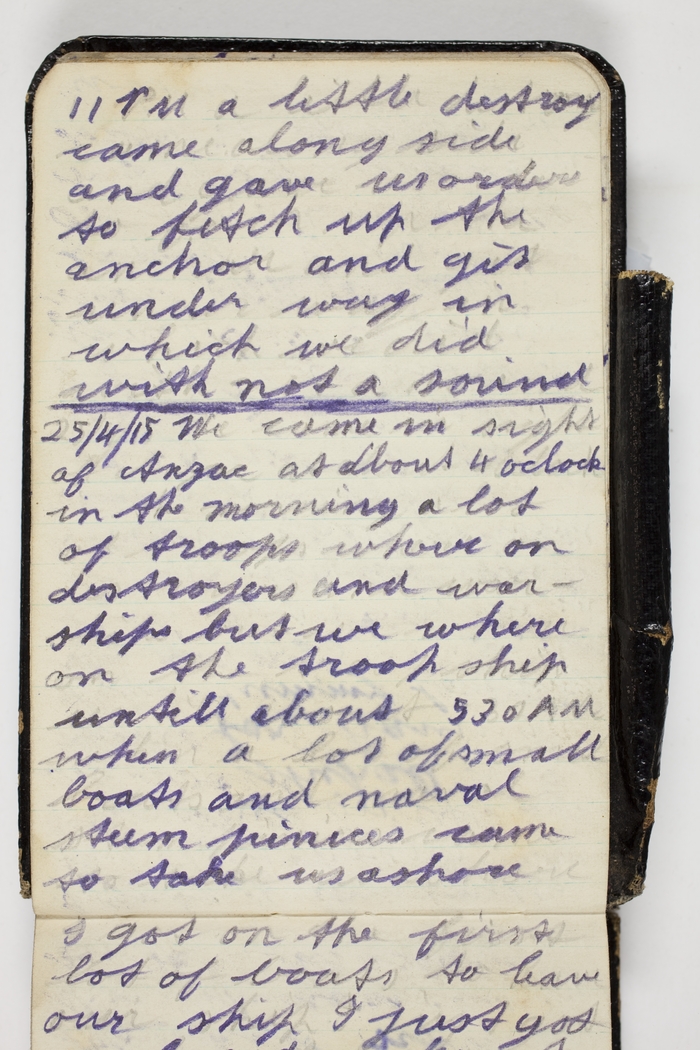 11 P M a little destroy
came along side
and gave us orders
to fetch up the
anchor and git
under way in
which we did
with not a sound
25/4/15 We came in sight
of Anzac at about 4 oclock
in the morning a lot
of troops where on
destroyers and war-
ships but we where
on the troop ship
untill about 530 AM
when a lot of small
boats and naval
steem pinices came
to take us ashore
I got on the first
lot of boats to leave
our ship I just got